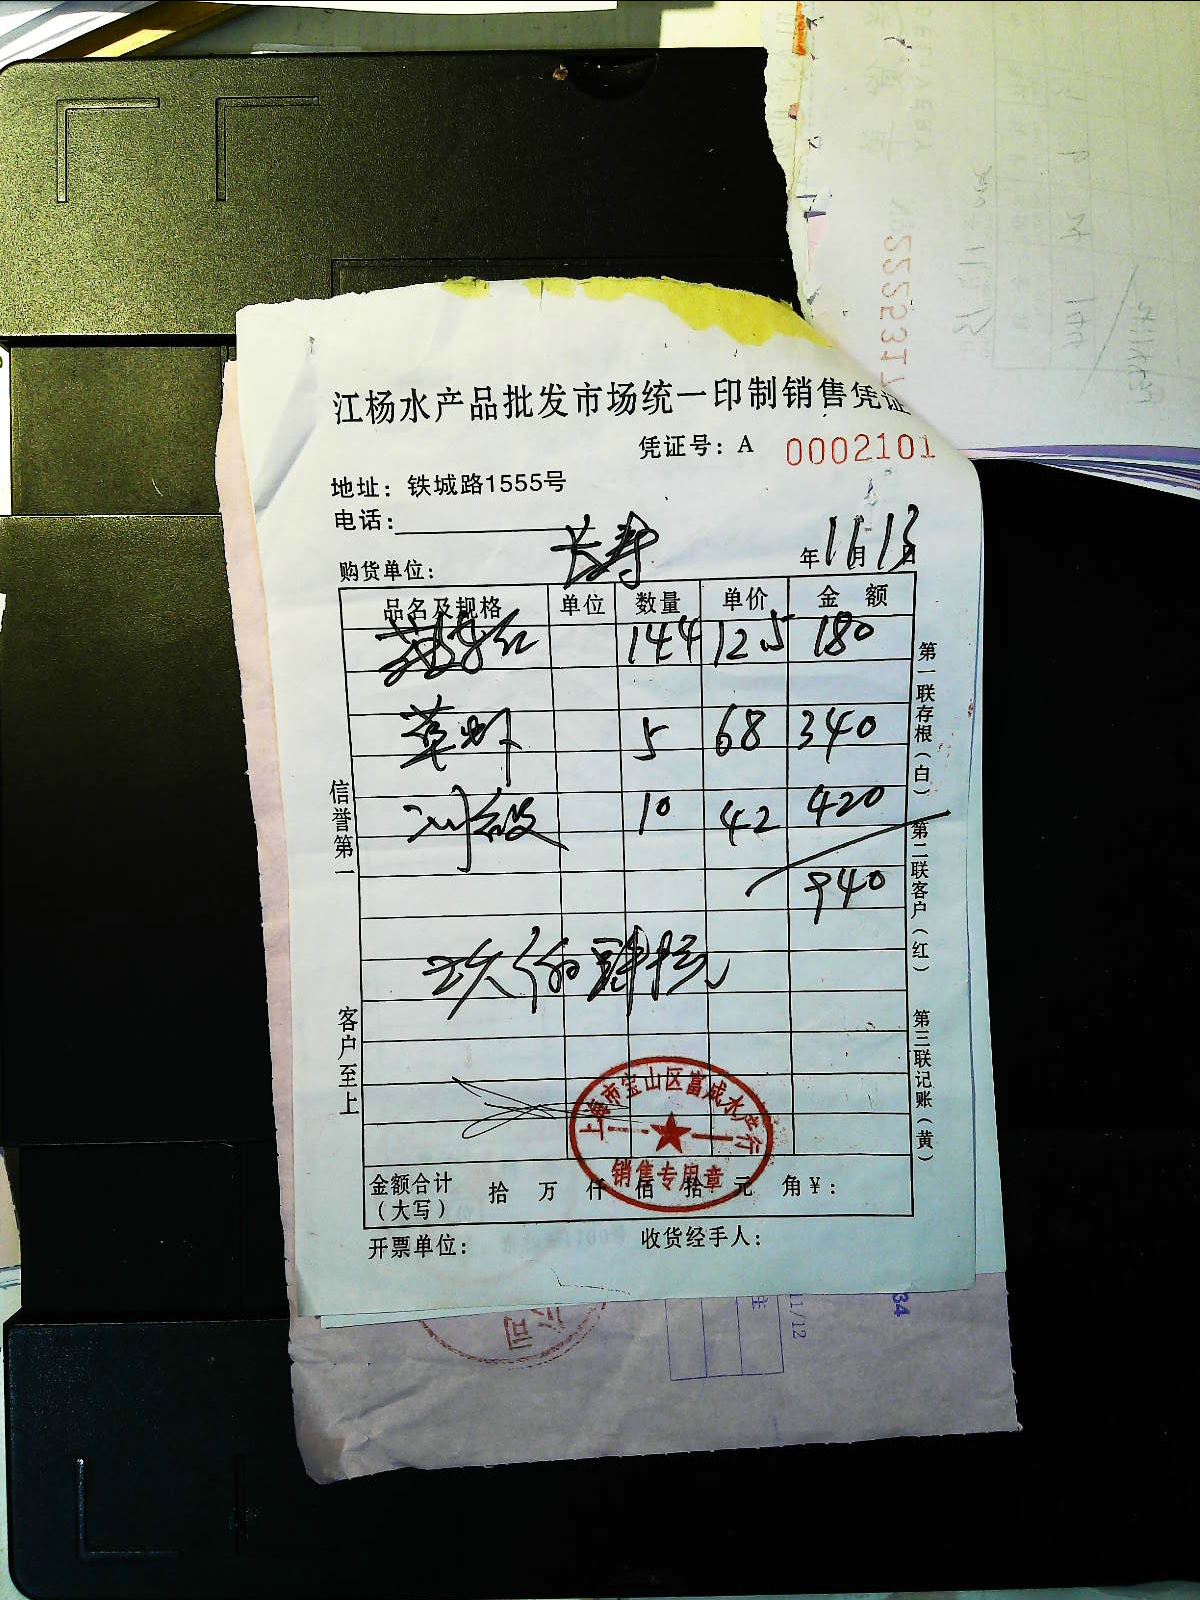 江杨水产品批发市场统一印制销售凭证
凭证号：A 0002101
地址：铁城路1555号
电话：
购货单位： 长寿 年11月13日
品名及规格 单位 数量 单价 金额
144 125 180
草虾 5 68 340
10 42 420
940
玖佰肆拾元
信誉第一
客户至上
第一联存根（白）
第二联客户（红）
第三联记账（黄）
上海市宝山区富成水产行
销售专用章
金额合计（大写） 拾 万 仟 佰 拾 元 角 ¥：
开票单位： 收货经手人：
公司
11/12
34